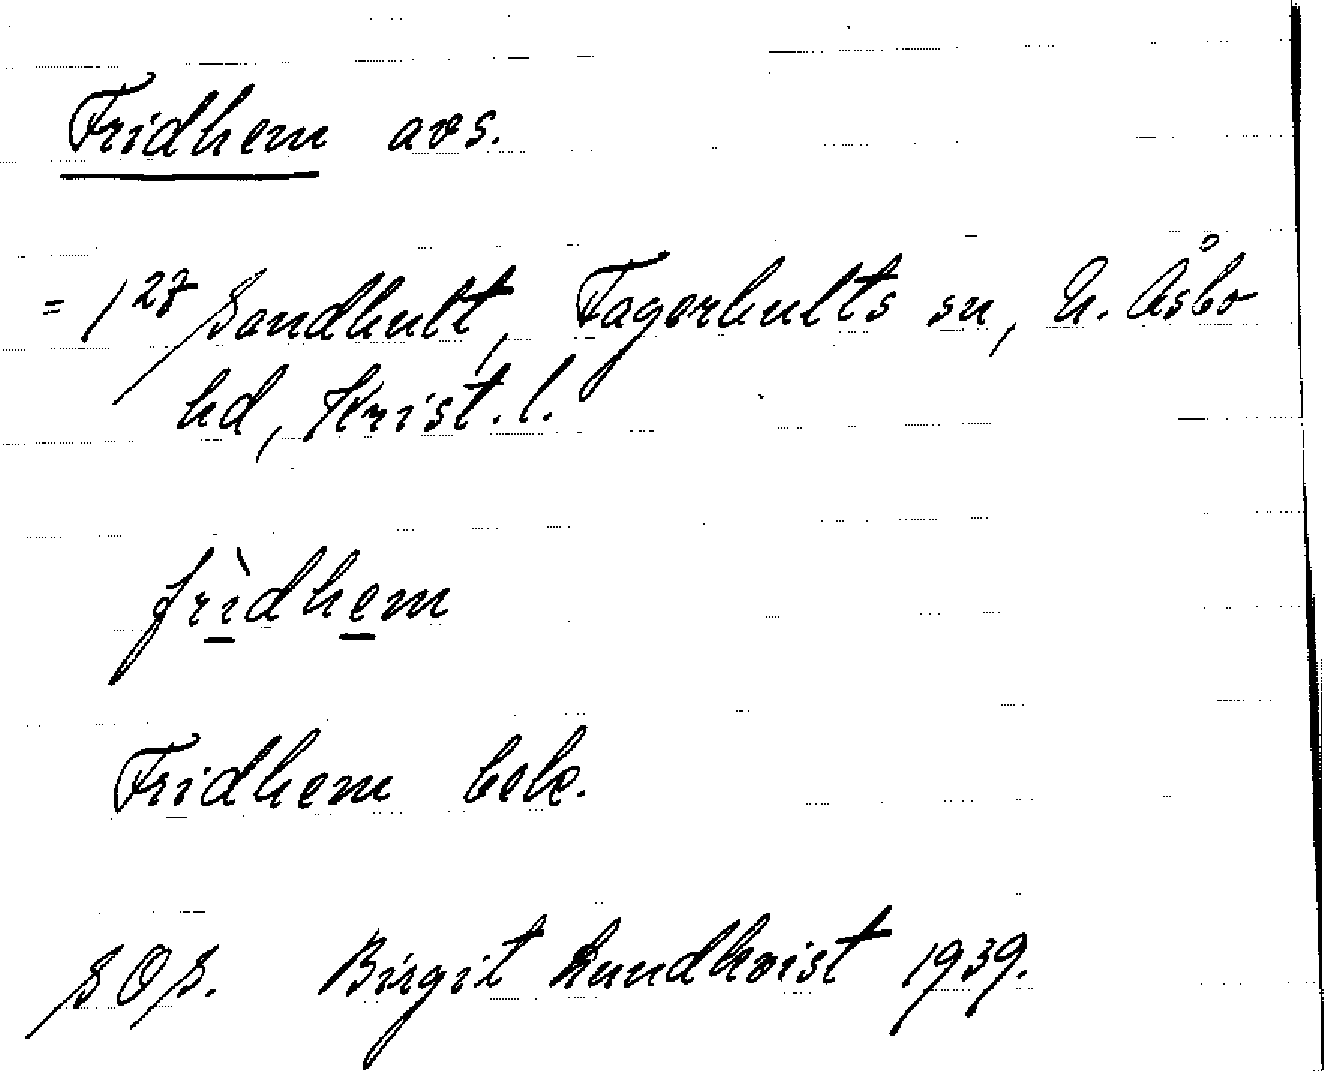 Fridhem avs.
= 1²⁷ Sandhult, Fagerhults sn, N. Åsbo
hd, Krist. l.
frìdhem
Fridhem bebo.
S O S. Birgit Lundkvist 1939.